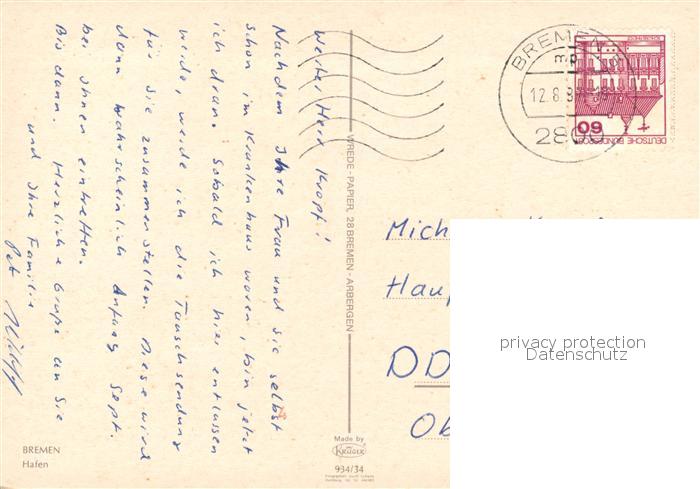 Werter Herr Kropf!
Nachdem Ihre Frau und Sie selbst
schon im Krankenhaus waren, bin jetzt
ich dran. Sobald ich hier entlassen
werde, werde ich die Tauschsendung
für Sie zusammenstellen. Diese wird
dann wahrscheinlich Anfang Sept.
bei Ihnen eintreffen.
Bis dann. Herzliche Grüße an Sie
und Ihre Familie
BREMEN
Hafen
WREDE-PAPIER, 28 BREMEN-ARBERGEN
Made by
KRÜGER
934/34
BREMEN
12.8.
2800
60
DEUTSCHE BUNDESPOST
Mich
Haup
DD
Ob
privacy protection
Datenschutz